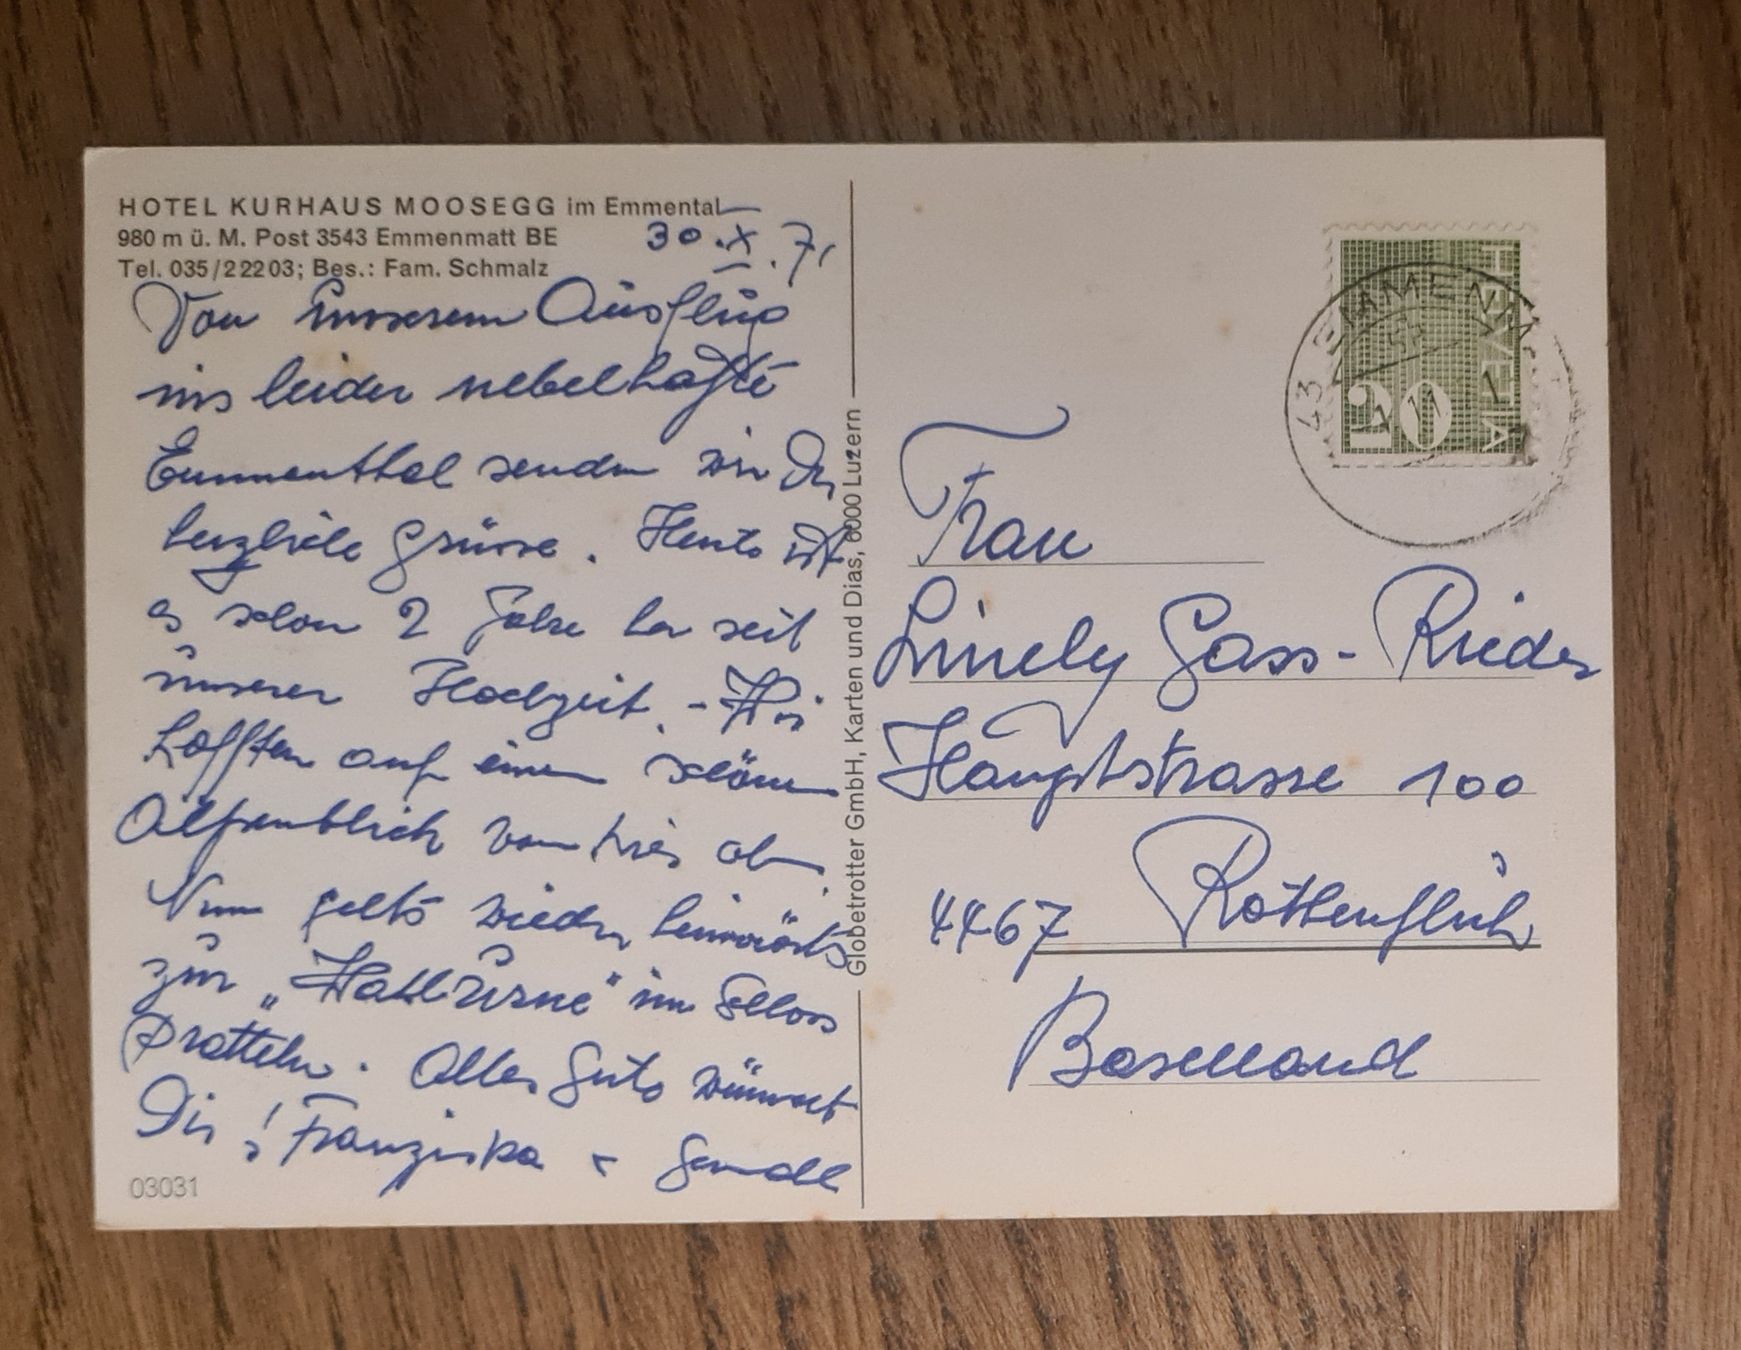 HOTEL KURHAUS MOOSEGG im Emmental
980 m ü. M. Post 3543 Emmenmatt BE
Tel. 035/22203; Bes.: Fam. Schmalz
30.X.71
Von unserem Ausflug
ins leider nebelhafte
Emmenthal senden wir Dir
herzliche Grüsse. Heute ist
es schon 2 Jahre her seit
unserer Hochzeit. - Wir
hofften auf einen schönen
Alpenblick von hier oben.
Nun gelts wieder heimwärts
zur „ " im Schloss
Pratteln. Alles Gute wünscht
Dir! Franziska +
03031
Globetrotter GmbH, Karten und Dias, 6000 Luzern
HELVETIA
20
Frau
Linely Gass-Rieder
Hauptstrasse 100
4467 Rothenfluh
Baselland